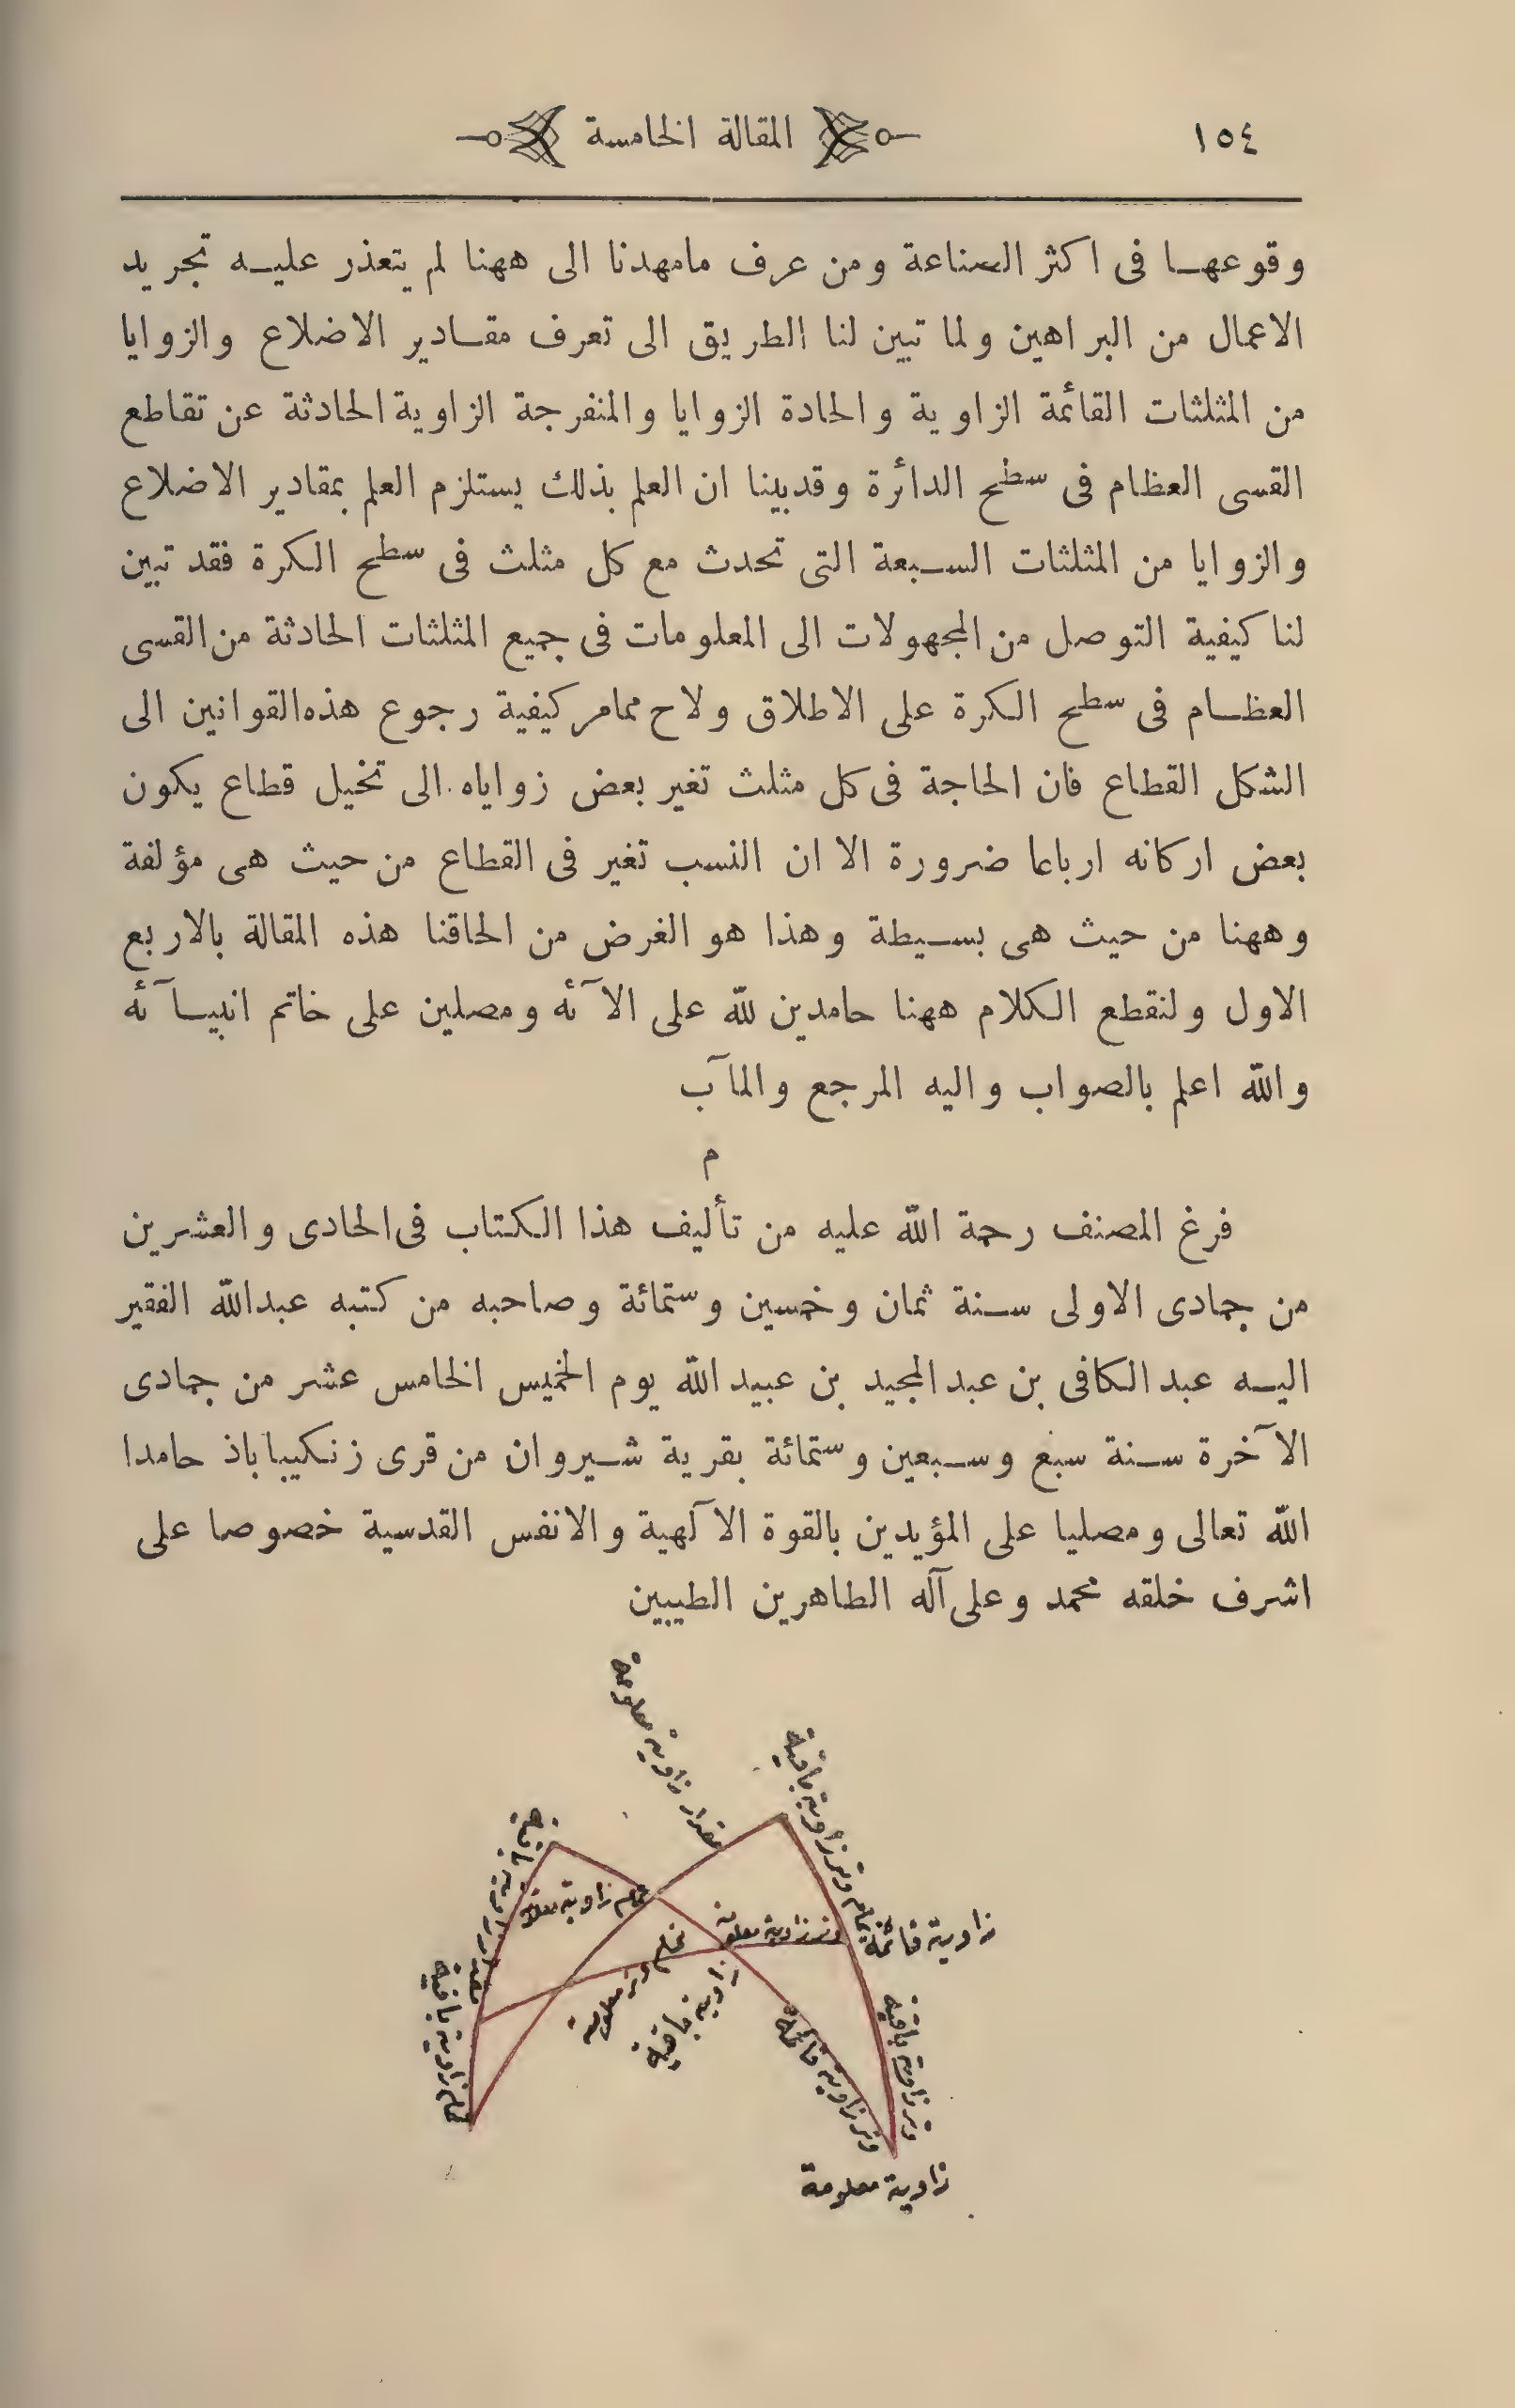 ١٥٤ المقالة الخامسة
وقوعها فى اكثر الصناعة ومن عرف مامهدنا الى ههنا لم يتعذر عليه تجريد
الاعمال من البراهين ولما تبين لنا الطريق الى تعرف مقادير الاضلاع والزوايا
من المثلثات القائمة الزاوية والحادة الزوايا والمنفرجة الزاوية الحادثة عن تقاطع
القسى العظام فى سطح الدائرة وقدبينا ان العلم بذلك يستلزم العلم بمقادير الاضلاع
والزوايا من المثلثات السبعة التى تحدث مع كل مثلث فى سطح الكرة فقد تبين
لنا كيفية التوصل من المجهولات الى المعلومات فى جميع المثلثات الحادثة من القسى
العظام فى سطح الكرة على الاطلاق ولاح ممامر كيفية رجوع هذه القوانين الى
الشكل القطاع فان الحاجة فى كل مثلث تغير بعض زواياه الى تخيل قطاع يكون
بعض اركانه ارباعا ضرورة الا ان النسب تغير فى القطاع من حيث هى مؤلفة
وههنا من حيث هى بسيطة وهذا هو الغرض من الحاقنا هذه المقالة بالاربع
الاول ولنقطع الكلام ههنا حامدين لله على الآئه ومصلين على خاتم انبيآئه
والله اعلم بالصواب واليه المرجع والمآب
م
فرغ المصنف رحمة الله عليه من تأليف هذا الكتاب فى الحادى والعشرين
من جمادى الاولى سنة ثمان وخمسين وستمائة وصاحبه من كتبه عبدالله الفقير
اليه عبد الكافى بن عبد المجيد بن عبيد الله يوم الخميس الخامس عشر من جمادى
الآخرة سنة سبع وسبعين وستمائة بقرية شيروان من قرى زنكيباباذ حامدا
الله تعالى ومصليا على المؤيدين بالقوة الآلهية والانفس القدسية خصوصا على
اشرف خلقه محمد وعلى آله الطاهرين الطيبين
مقدار زاوية معلومة
تمام وتر زاوية باقية
تمام زاوية معلومة
وتر زاوية معلومة
زاوية قائمة
تمام وتر معلومة
زاوية باقية
تمام زاوية باقية
وتر زاوية قائمة
وتر زاوية باقية
زاوية معلومة